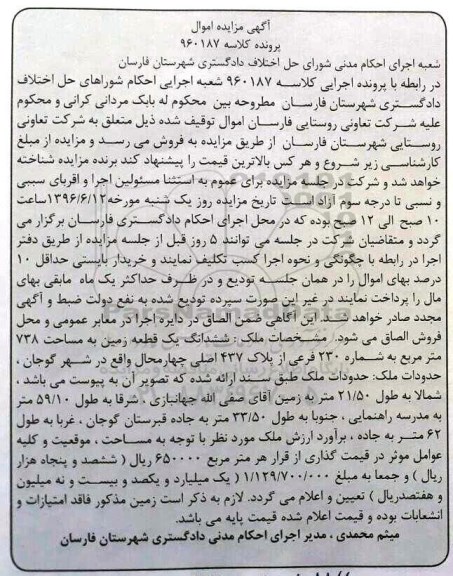 آگهی مزایده اموال
پرونده کلاسه ۹۶۰۱۸۷
شعبه اجرای احکام مدنی شورای حل اختلاف دادگستری شهرستان فارسان
در رابطه با پرونده اجرایی کلاسه ۹۶۰۱۸۷ شعبه اجرایی احکام شوراهای حل اختلاف
دادگستری شهرستان فارسان مطروحه بین محکوم له بابک مردانی کرانی و محکوم
علیه شرکت تعاونی روستایی فارسان اموال توقیف شده ذیل متعلق به شرکت تعاونی
روستایی شهرستان فارسان از طریق مزایده به فروش می رسد و مزایده از مبلغ
کارشناسی زیر شروع و هر کس بالاترین قیمت را پیشنهاد کند برنده مزایده شناخته
خواهد شد و شرکت در جلسه مزایده برای عموم به استثنا مسئولین اجرا و اقربای سببی
و نسبی تا درجه سوم آزاد است تاریخ مزایده روز یک شنبه مورخه ۱۳۹۶/۶/۱۲ساعت
۱۰ صبح الی ۱۲ صبح بوده که در محل اجرای احکام دادگستری فارسان برگزار می
گردد و متقاضیان شرکت در جلسه می توانند ۵ روز قبل از جلسه مزایده از طریق دفتر
اجرا در رابطه با چگونگی و نحوه اجرا کسب تکلیف نمایند و خریدار بایستی حداقل ۱۰
درصد بهای اموال را در همان جلسه تودیع و در ظرف حداکثر یک ماه مابقی بهای
مال را پرداخت نمایند در غیر این صورت سپرده تودیع شده به نفع دولت ضبط و آگهی
مجدد صادر خواهد شد. این آگاهی ضمن الصاق در دایره اجرا در معابر عمومی و محل
فروش الصاق می شود. مشخصات ملک: ششدانگ یک قطعه زمین به مساحت ۷۳۸
متر مربع به شماره ۲۳۰ فرعی از پلاک ۴۳۷ اصلی چهارمحال واقع در شهر گوجان ،
حدودات ملک: حدودات ملک طبق سند ارائه شده که تصویر آن به پیوست می باشد ،
شمالا به طول ۲۱/۵۰ متر به زمین آقای صفی الله جهانبازی . شرقا به طول ۵۹/۱۰ متر
به مدرسه راهنمایی ، جنوبا به طول ۳۳/۵۰ متر به جاده قبرستان گوجان ، غربا به طول
۶۲ متر به جاده ، برآورد ارزش ملک مورد نظر با توجه به مساحت ، موقعیت و کلیه
عوامل موثر در قیمت گذاری از قرار هر متر مربع ۶۵۰۰۰۰ ریال ( ششصد و پنجاه هزار
ریال ) و جمعا به مبلغ ۱/۱۲۹/۷۰۰/۰۰۰ ( یک میلیارد و یکصد و بیست و نه میلیون
و هفتصدریال ) تعیین و اعلام می گردد. لازم به ذکر است زمین مذکور فاقد امتیازات و
انشعابات بوده و قیمت اعلام شده قیمت پایه می باشد.
میثم محمدی ، مدیر اجرای احکام مدنی دادگستری شهرستان فارسان